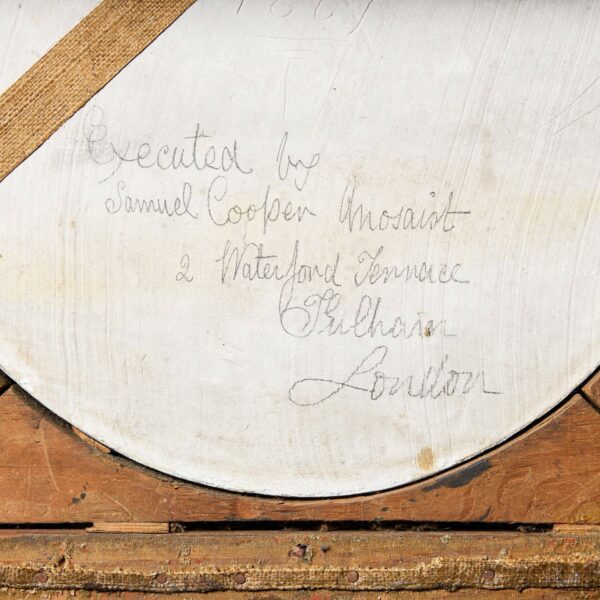 Executed by
Samuel Cooper Mosaist
2 Waterford Terrace
Fulham
London